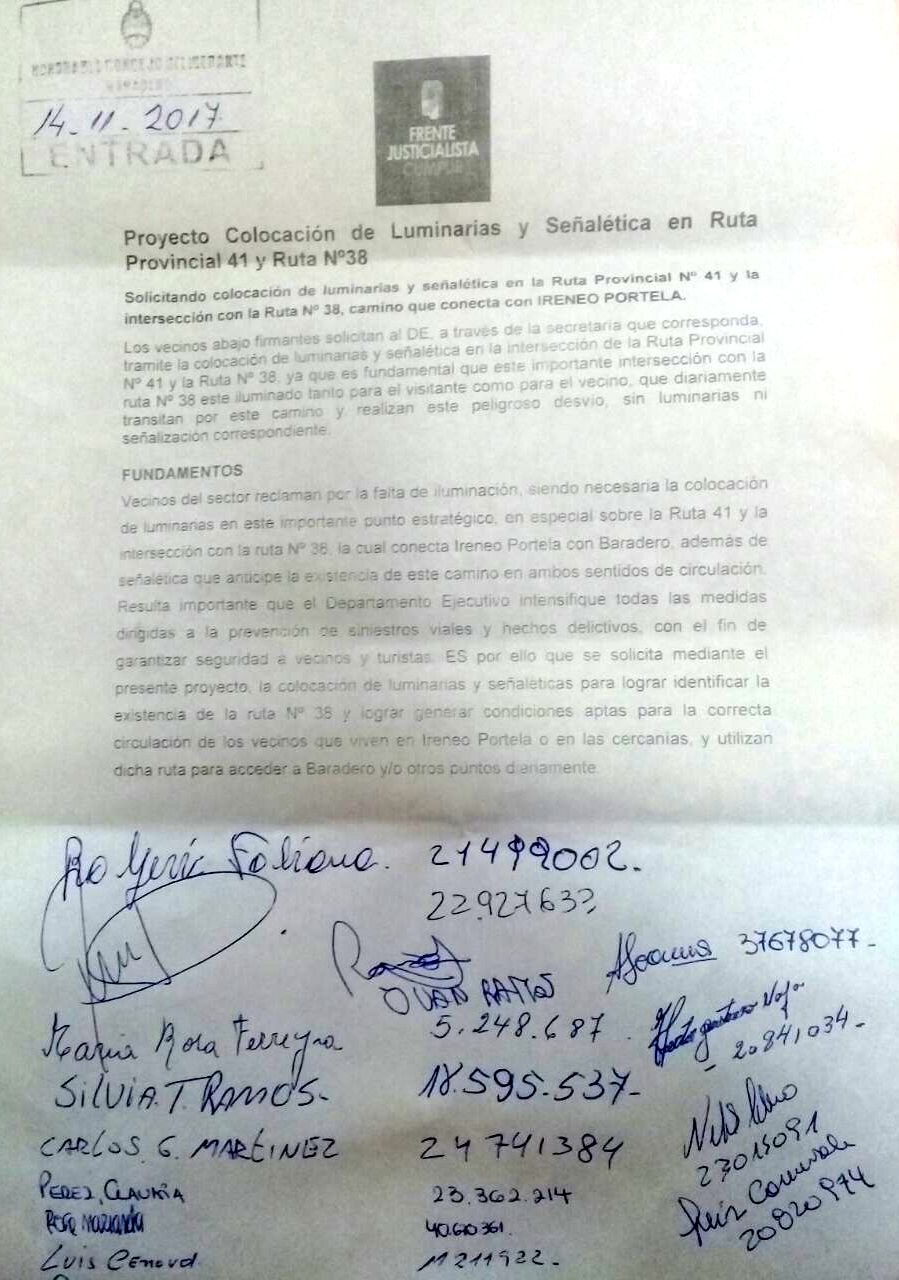 HONORABLE CONCEJO DELIBERANTE
BARADERO
14-11-2017
ENTRADA
FRENTE
JUSTICIALISTA
CUMPLIR
Proyecto Colocación de Luminarias y Señalética en Ruta
Provincial 41 y Ruta Nº38
Solicitando colocación de luminarias y señalética en la Ruta Provincial Nº 41 y la
intersección con la Ruta Nº 38, camino que conecta con IRENEO PORTELA.
Los vecinos abajo firmantes solicitan al DE, a través de la secretaria que corresponda,
tramite la colocación de luminarias y señalética en la intersección de la Ruta Provincial
Nº 41 y la Ruta Nº 38, ya que es fundamental que este importante intersección con la
ruta Nº 38 este iluminado tanto para el visitante como para el vecino, que diariamente
transitan por este camino y realizan este peligroso desvio, sin luminarias ni
señalización correspondiente.
FUNDAMENTOS
Vecinos del sector reclaman por la falta de iluminación, siendo necesaria la colocación
de luminarias en este importante punto estratégico, en especial sobre la Ruta 41 y la
intersección con la ruta Nº 38, la cual conecta Ireneo Portela con Baradero, además de
señalética que anticipe la existencia de este camino en ambos sentidos de circulación.
Resulta importante que el Departamento Ejecutivo intensifique todas las medidas
dirigidas a la prevención de siniestros viales y hechos delictivos, con el fin de
garantizar seguridad a vecinos y turistas. ES por ello que se solicita mediante el
presente proyecto, la colocación de luminarias y señaléticas para lograr identificar la
existencia de la ruta Nº 38 y lograr generar condiciones aptas para la correcta
circulación de los vecinos que viven en Ireneo Portela o en las cercanías, y utilizan
dicha ruta para acceder a Baradero y/o otros puntos diariamente.
21499002.
22.927633
37678077-
RAMOS
Maria Rosa Ferreyra 5.248.687
- 20841,034-
SILVIA.T.RAMOS- 18.595.537-
CARLOS G. MARTINEZ 24741384
23015091
PEREZ, CLAUDIA 23.362.214
40.610.361
20820974
Luis 11211922-